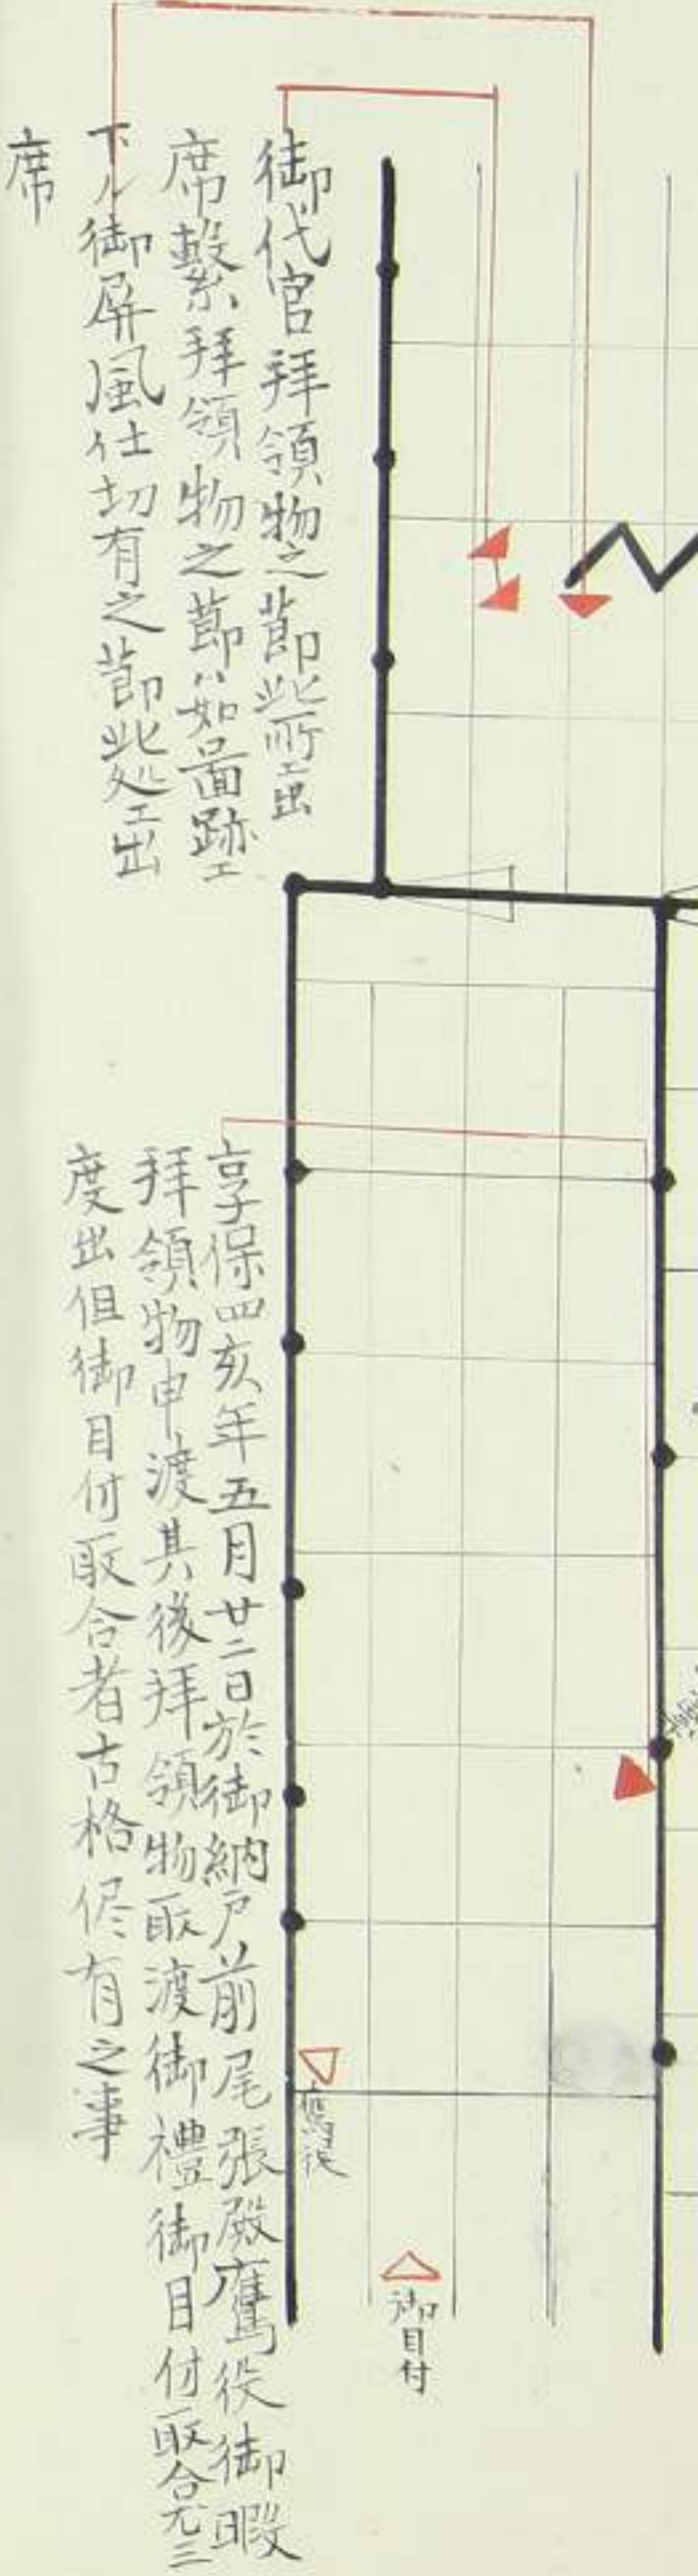 御代官拝領物之節此所エ出
席繋拝領物之節ハ如図跡エ
下ル御屏風仕切有之節此処エ出
席
享保四亥年五月廿二日於御納戸前尾張殿鷹役御暇
拝領物申渡其後拝領物取渡御禮御目付取合尤三
度出但御目付取合者古格侭有之事
鷹役
御目付